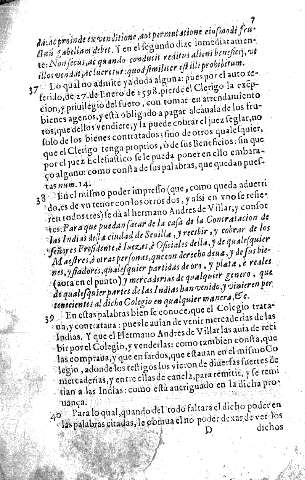 7
da: ac proinde ex venditione aut permutatione eiusmodi fru-
ctuū gabellam debet. Y en el segundo dize immediatamen-
te: Non secus, ac quando conducit reditus alieni beneficij, ut
illos vendat, ac lucretur: quod similiter est illi prohibitum.
37 Lo qual no admite ya duda alguna: pues por el auto re-
ferido, de 27. de Enero de 1598. pierde el Clerigo la exēp-
cion, y priuilegio del fuero, con tomar en arrendamiento
bienes agenos, y està obligado a pagar alcauala de los fru-
tos, que dellos vendiere, y la puede cobrar el juez seglar, no
solo de los bienes contratados, sino de otros qualesquier,
que el Clerigo tenga proprios, ò de sus Beneficios: sin que
por el juez Eclesiastico se le pueda poner en ello embara-
ço alguno: como consta de sus palabras, que quedan pues-
tas num. 14.
38 En el mismo poder impresso (que, como queda aduerti-
do, es de vn tenor con los otros dos, y assi en vno se refie-
ren todos tres) se dà al hermano Andres de Villar, y consor-
tes: Para que puedan sacar de la casa de la Contratacion de
las Indias de la ciudad de Seuilla, y recebir, y cobrar de los
señores Presidente, è Iuezes, è Oficiales della, y de qualesquier
Maestres, è otras personas, que con derecho deua, y de sus bie-
nes, y fiadores, qualesquier partidas de oro, y plata, è reales
(aora en el punto) y mercaderias de qualquier genero, que
de qualesquier partes de las Indias han venido, y vinieren per-
tenecientes al dicho Colegio en qualquier manera, &c.
39 En estas palabras bien se conoce, que el Colegio trata-
ua, y contrataua: pues le auian de venir mercaderias de las
Indias. Y que el Hermano Andres de Villar las auia de reci-
bir por el Colegio, y venderlas: como tambien consta, que
las compraua, y que en fardos, que estauan en el mismo Co-
legio, adonde los testigos los vieron de diuersas suertes de
mercaderias, y entre ellas de canela, para remitir, y se remi-
tian a las Indias: como està aueriguado en la dicha pro-
uança.
40 Para lo qual, quando del todo faltara el dicho poder en
las palabras citadas, le obstaua el no poder dexar de ver los
D dichos